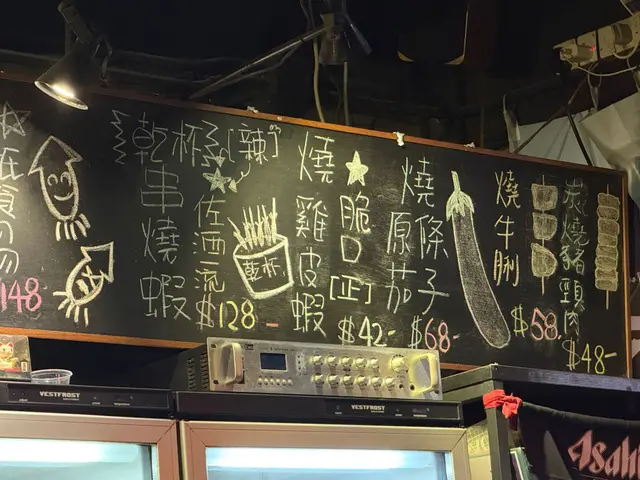 148
乾杯 [辣]
串燒蝦
佐酒一流
$128-
乾杯
燒雞皮蝦
脆口[正]
$42-
燒
原條
茄子
$68-
燒牛脷
$58-
炭燒豬頸肉
$48-
VESTFROST
VESTFROST
Asahi